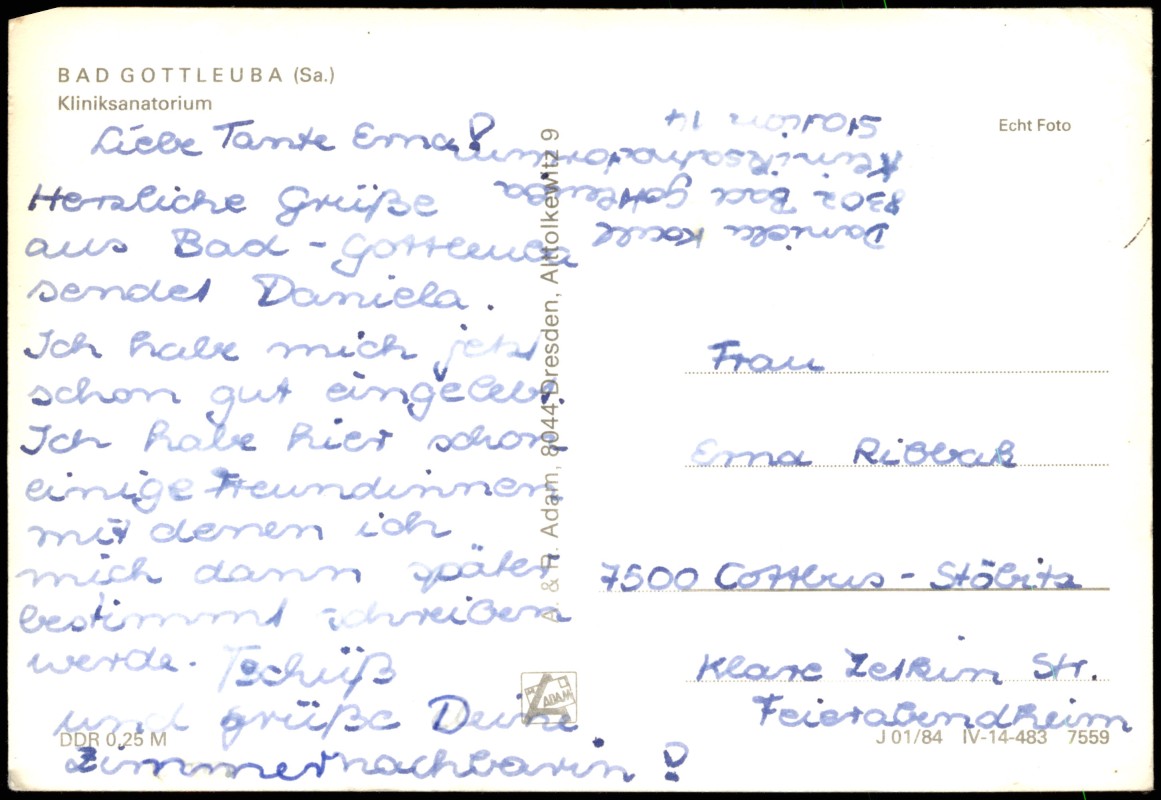 BAD GOTTLEUBA (Sa.)
Kliniksanatorium
Echt Foto
Liebe Tante Erna!
Herzliche Grüße
aus Bad-Gottleuba
sendet Daniela.
Ich habe mich jetzt
schon gut eingelebt.
Ich habe hier schon
einige Freundinnen
mit denen ich
mich dann später
bestimmt schreiben
werde. Tschüß
und grüße Deine
Zimmernachbarin!
Daniela
8302 Bad Gottleuba
Kliniksanatorium
Station 14
A. & R. Adam, 8044 Dresden, Alttolkewitz 9
ADAM
Frau
Erna
7500 Cottbus - Ströbitz
Klare Zetkin Str.
Feierabendheim
DDR 0,25 M
J 01/84 IV-14-483 7559